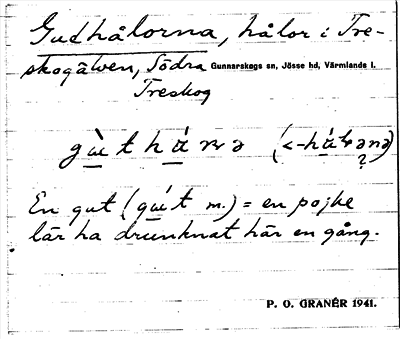 Gudhålorna, hålor i Tre-
skogälven, Södra Gunnarskogs sn, Jösse hd, Värmlands l.
Treskog
En gut (gút m.) = en pojke
lär ha drunknat här en gång.
P. O. GRANÉR 1941.